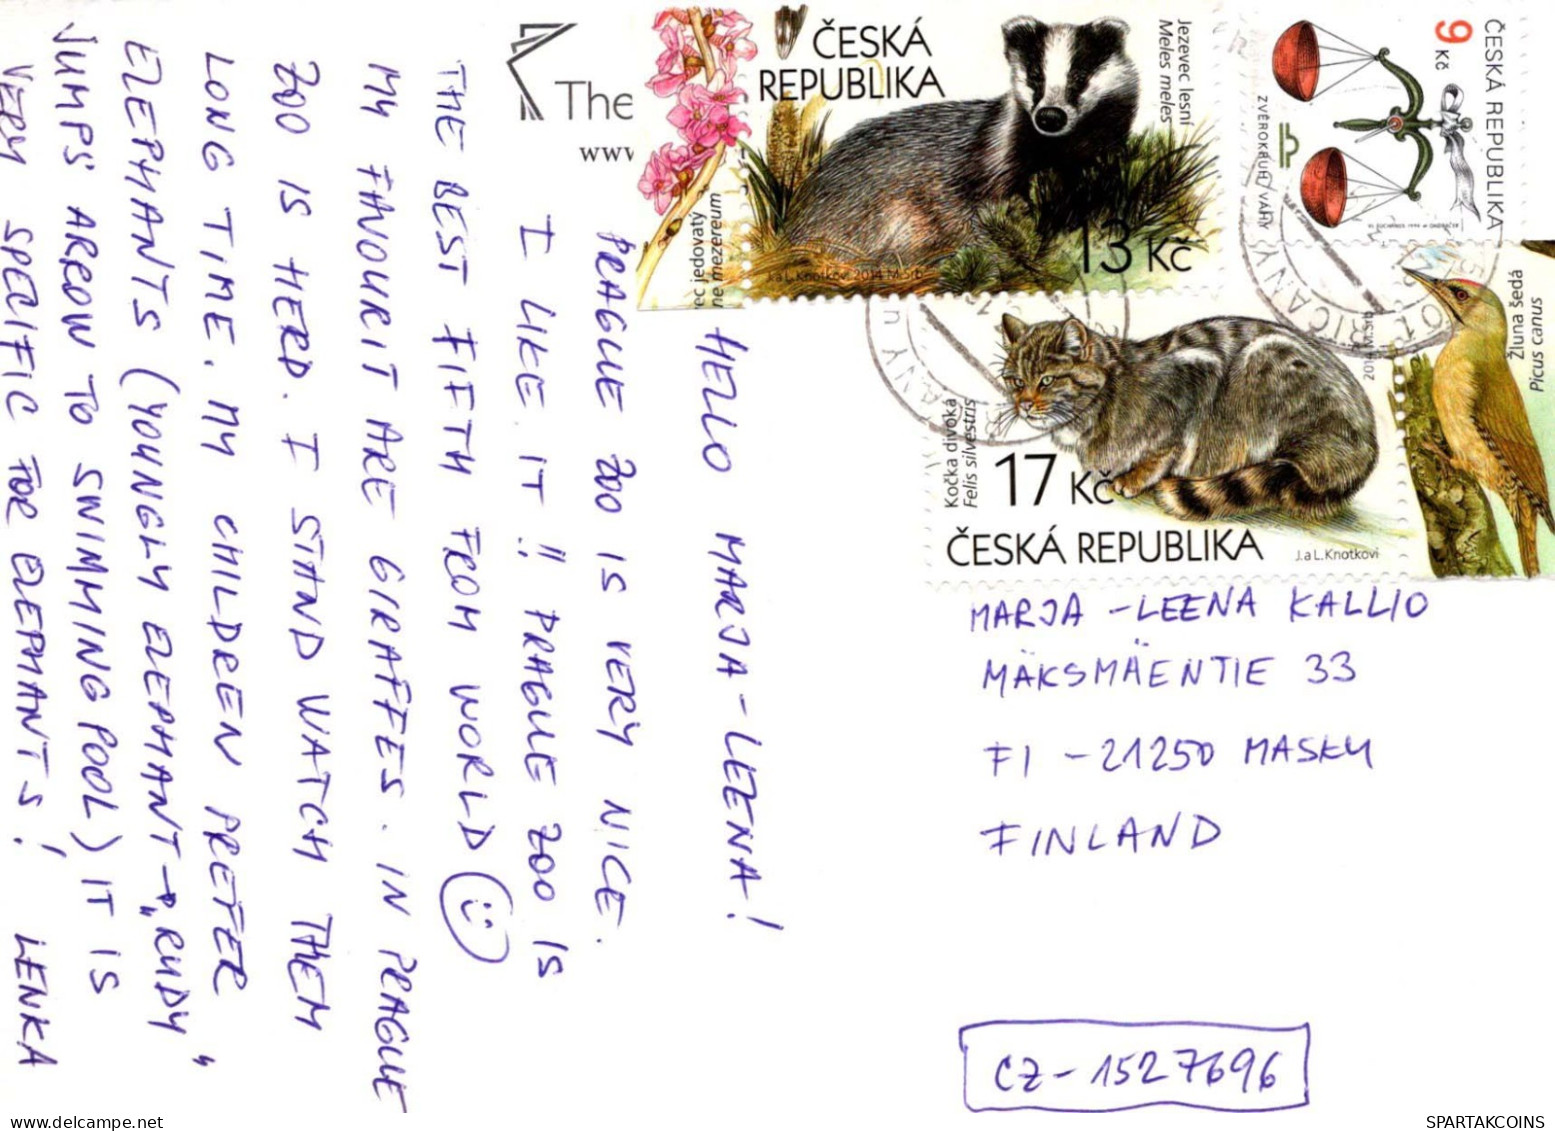 HELLO MARJA-LEENA!
PRAGUE ZOO IS VERY NICE.
I LIKE IT!! PRAGUE ZOO IS
THE BEST FIFTH FROM WORLD
MY FAVOURIT ARE GIRAFFES. IN PRAGUE
ZOO IS HERD. I STAND WATCH THEM
LONG TIME. MY CHILDREN PREFER
ELEPHANTS (YOUNGLY ELEPHANT → „RUDY“
JUMPS ARROW TO SWIMMING POOL) IT IS
VERY SPECIFIC FOR ELEPHANTS! LENKA
The
www
ČESKÁ
REPUBLIKA
Jezevec lesní
Meles meles
13 Kč
J.a L.Knotkovi 2014 M.Srb
ec jedovatý
ne mezereum
ČESKÁ REPUBLIKA
9 Kč
ZVĚROKRUH VÁHY
Kočka divoká
Felis silvestris
17 Kč
ČESKÁ REPUBLIKA
J.a L.Knotkovi
2014 M.Srb
Žluna šedá
Picus canus
MARJA-LEENA KALLIO
MÄKSMÄENTIE 33
FI-21250 MASKU
FINLAND
CZ-1527696
www.delcampe.net
SPARTAKCOINS